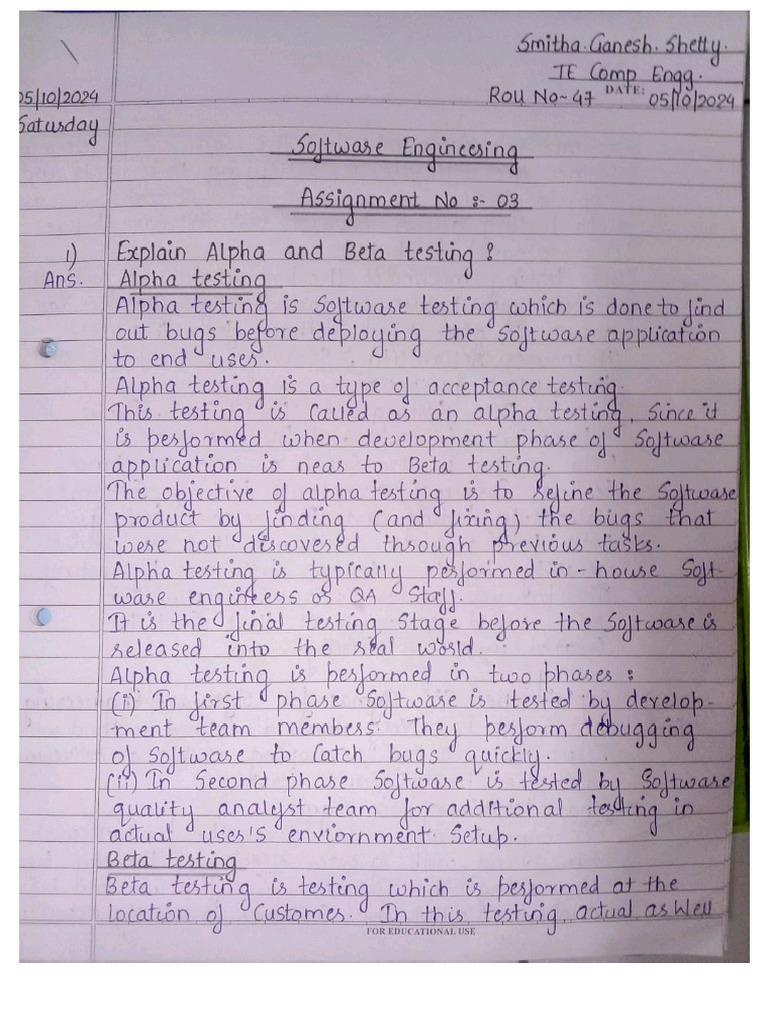 Smitha. Ganesh. Shetty.
TE Comp Engg.
Roll No- 47 DATE: 05/10/2024
05/10/2024
Saturday
Software Engineering
Assignment No :- 03
1) Explain Alpha and Beta testing ?
Ans. Alpha testing
Alpha testing is Software testing which is done to find
out bugs before deploying the Software application
to end user.
Alpha testing is a type of acceptance testing.
This testing is called as an alpha testing, Since it
is performed when development phase of Software
application is near to Beta testing.
The objective of alpha testing is to refine the Software
product by finding (and fixing) the bugs that
were not discovered through previous tasks.
Alpha testing is typically performed in-house Soft-
ware engineers or QA Staff.
It is the final testing Stage before the Software is
released into the real world.
Alpha testing is performed in two phases :
(i) In first phase Software is tested by develop-
ment team members. They perform debugging
of Software to Catch bugs quickly.
(ii) In Second phase Software is tested by Software
quality analyst team for additional testing in
actual user's enviornment Setup.
Beta testing
Beta testing is testing which is performed at the
location of Customer. In this testing, actual as well
FOR EDUCATIONAL USE